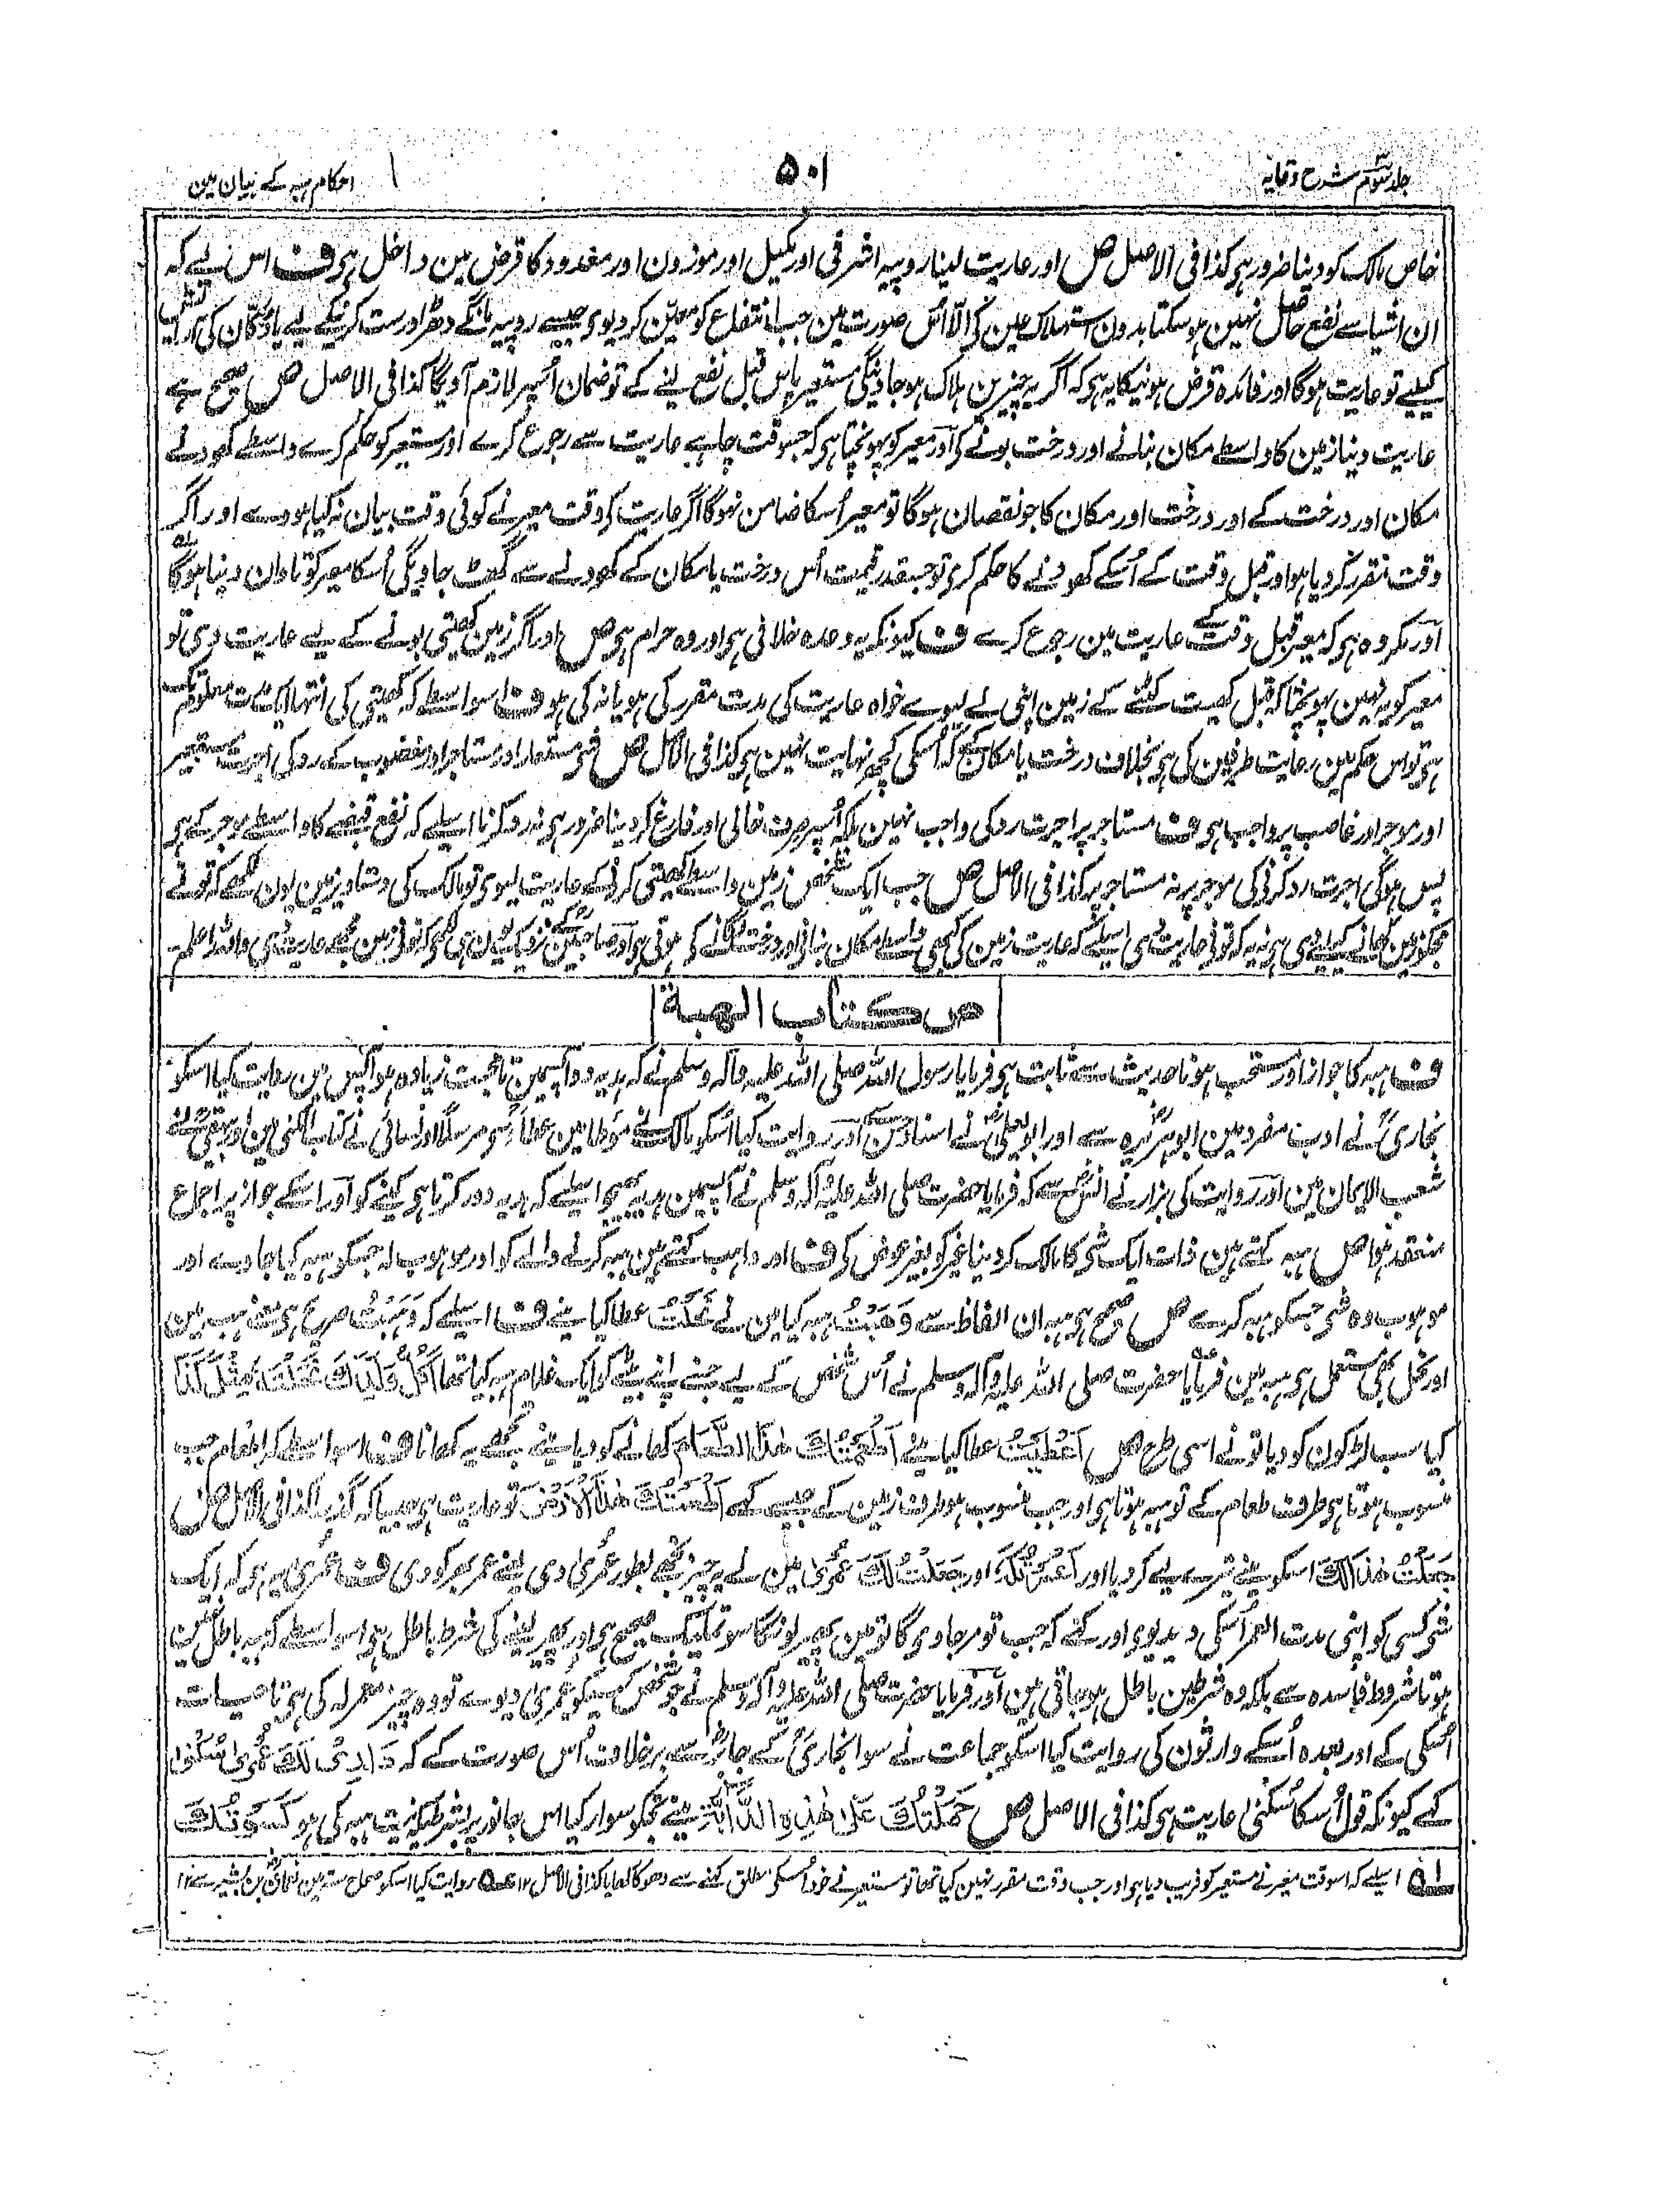 جلد سوم شرح وقایہ
۵۰۱
احکام ہبہ کے بیان مین
خاص مالک کو دینا ضرور ہی کذا فی الاصل ص اور عاریت لینا روپیہ اشرفی اور مکیل اور موزون اور معدود کا قرض مین داخل ہی ف اس لیے کہ
ان اشیا سے نفع حاصل نہین ہو سکتا بدون استہلاک عین کی الا اس صورت مین جب انتفاع کو معین کر دیوی جیسے روپیہ مانگے دھڑا درست کرنیکے لیے یا دوکان کی آرایش
کیلیے تو عاریت ہوگا اور فائدہ قرض ہونیکا یہ ہی کہ اگر یہ چیزین ہلاک ہو جاوینگی مستعیر پاس قبل نفع لینے کے تو ضمان اسپر لازم آویگا کذا فی الاصل ص صحیح ہے
عاریت دینا زمین کا واسطے مکان بنانے اور درخت بونے کی اور معیر کو پہونچتا ہی کہ جسوقت چاہے عاریت سے رجوع کرے اور مستعیر کو حکم کرے واسطے کھودنے
مکان اور درخت کے اور درخت اور مکان کا جو نقصان ہوگا تو معیر اُسکا ضامن نہوگا اگر عاریت کی وقت معیر نے کوئی وقت بیان نہ کیا ہووے اور اگر
وقت مقرر کر دیا ہو اور قبل وقت کے اُسکے کھودنے کا حکم کری تو جسقدر قیمت اُس درخت یا مکان کے کھودنے سے گھٹ جاویگی اُسکا معیر کو تاوان دینا ہوگا
اور مکروہ ہی کہ معیر قبل وقت کے عاریت مین رجوع کرے ف کیونکہ یہ وعدہ خلافی ہی اور وہ حرام ہی ص اور اگر زمین کھیتی بونے کے لیے عاریت دی تو
معیر کو یہ نہین پہونچتا کہ قبل کھیت کٹنے کے زمین اپنی لے لیوے خواہ عاریت کی مدت مقرر کی ہو یا نہ کی ہو ف اسواسطے کہ کھیتی کی انتہا ایک مدت معلوم تک
ہی تو اس حکم مین رعایت طرفین کی ہی بخلاف درخت یا مکان کے کہ اُسکی کچھ نہایت نہین ہی کذا فی الاصل ص شی مستعار اور مستاجر اور مغصوب کے رد کی اجرت مستعیر
اور موجر اور غاصب پر واجب ہی ف مستاجر پر اجرت رد کی واجب نہین بلکہ اُسپر صرف خالی اور فارغ کر دینا ضرور ہی نہ رد کرنا اسلیے کہ نفع قبضے کا واسطے موجر کے ہی
پس ہوگی اجرت رد کرنی کی موجر پر نہ مستاجر پر کذا فی الاصل ص جب ایک شخص زمین واسطے کھیتی کرنی کے عاریت لیوی تو مالک کی دستاویز مین یون لکھے کہ تو نے
مجکو زمین کھانے کیلیے دی ہی نہ یہ کہ تونی عاریت دی اسلیے کہ عاریت زمین کی کبھی واسطے مکان بنانی اور درخت لگانے کی ہوتی ہی اور صاحبین کے نزدیک یون ہی لکھی کہ تونی زمین مجھے عاریت دی واللہ اعلم۔
ص کتاب الہبة
ف ہبہ کا جواز اور مستحب ہونا حدیث سے ثابت ہی فرمایا رسول اللہ صلی اللہ علیہ وآلہ وسلم نے کہ ہدیہ دو آپسمین تا محبت زیادہ ہو آپس مین روایت کیا اسکو
بخاریؒ نے ادب مفرد مین ابوہریرہ سے اور ابو یعلیٰ نے اسناد حسن اور روایت کیا اسکو مالک نے مؤطا مین عطا سے مرسلاً اور نسائی نے کتاب الکنیٰ مین اور بیہقی نے
شعب الایمان مین اور روایت کی بزار نے انس سے کہ فرمایا حضرت صلی اللہ علیہ وآلہ وسلم نے آپسمین ہدیہ بھیجو اسلیے کہ ہدیہ دور کرتا ہی کینے کو اور اسکے جواز پر اجماع
منعقد ہوا ص ہبہ کہتے ہین ذات ایک شی کا مالک کر دینا غیر کو بغیر عوض کی ف اور واہب کہتے ہین ہبہ کرنے والے کو اور موہوب لہ جسکو ہبہ کیا جاوے اور
موہوب وہ شی جسکو ہبہ کرے ص صحیح ہی ہبہ ان الفاظ سے وَهَبْتُ ہبہ کیا مین نے نَحَلْتُ عطا کیا مینے ف اسلیے کہ وَهَبْتُ صریح ہی معنی ہبہ مین
اور نحل بھی مستعمل ہی ہبہ مین فرمایا حضرت صلی اللہ علیہ وآلہ وسلم نے اُس شخص کے لیے جسنے اپنے بیٹے کو ایک غلام ہبہ کیا تھا اَكُلَّ وَلَدِكَ نَحَلْتَهُ مِثْلَ هٰذَا
کیا سب لڑکون کو دیا تو نے اسی طرح ص اَعْطَيْتُ عطا کیا مینے اَطْعَمْتُكَ هٰذَا الطَّعَامَ کھانے کو دیا مینے تجھے یہ کھانا ف اسواسطے کہ اطعام جب
منسوب ہوتا ہی طرف طعام کے تو ہبہ ہوتا ہی اور جب منسوب ہو طرف زمین کے جیسے کہے اَطْعَمْتُكَ هٰذِهِ الْاَرْضَ تو عاریت ہی جیسا کہ گذرا کذا فی الاصل ص
جَعَلْتُ هٰذَا لَكَ اسکو مینے تیرے لیے کر دیا اور اَعْمَرْتُكَ اور جَعَلْتُ لَكَ عُمْرٰی مین نے یہ چیز تجھے بطور عُمری دی یعنے عمر بھر کو دی ف عُمری یہ ہی کہ ایک
شی کسی کو اپنی مدت العمر اُسکی دیدیوی اور کہے کہ جب تو مر جاویگا تو مین پھیر لونگا سو تملیک صحیح ہی اور پھیر لینے کی شرط باطل ہی اسواسطے کہ ہبہ باطل نہین
ہوتا شروط فاسدہ سے بلکہ وہ شرطین باطل ہو جاتی ہین اور فرمایا حضرت صلی اللہ علیہ وآلہ وسلم نے جو شخص کسیکو عمری دیوے تو وہ چیز معمر لہ کی ہی تا حیات
اُسکی کے اور بعدہ اُسکے وارثون کی روایت کیا اسکو جماعت نے سوا بخاریؒ کے جابر سے برخلاف اُس صورت کے کہ دَارِیْ لَكَ عُمْرٰی سُكْنٰی
کہے کیونکہ قول اُسکا سُکنٰی عاریت ہی کذا فی الاصل ص حَمَلْتُكَ عَلٰی هٰذِهِ الدَّابَّةِ مینے تجکو سوار کیا اس جانور پر بشرطیکہ نیت ہبہ کی ہو كَسَوْتُكَ
لہ اسلیے کہ اسوقت معیر نے مستعیر کو فریب دیا ہی اور جب وقت مقرر نہین کیا تھا تو مستعیر نے خود اُسکی مطلق کہنے سے دھوکا کھایا کذا فی الاصل ۱۲ روایت کیا اسکو صحاح ستہ مین نعمان بن بشیر سے ۱۲